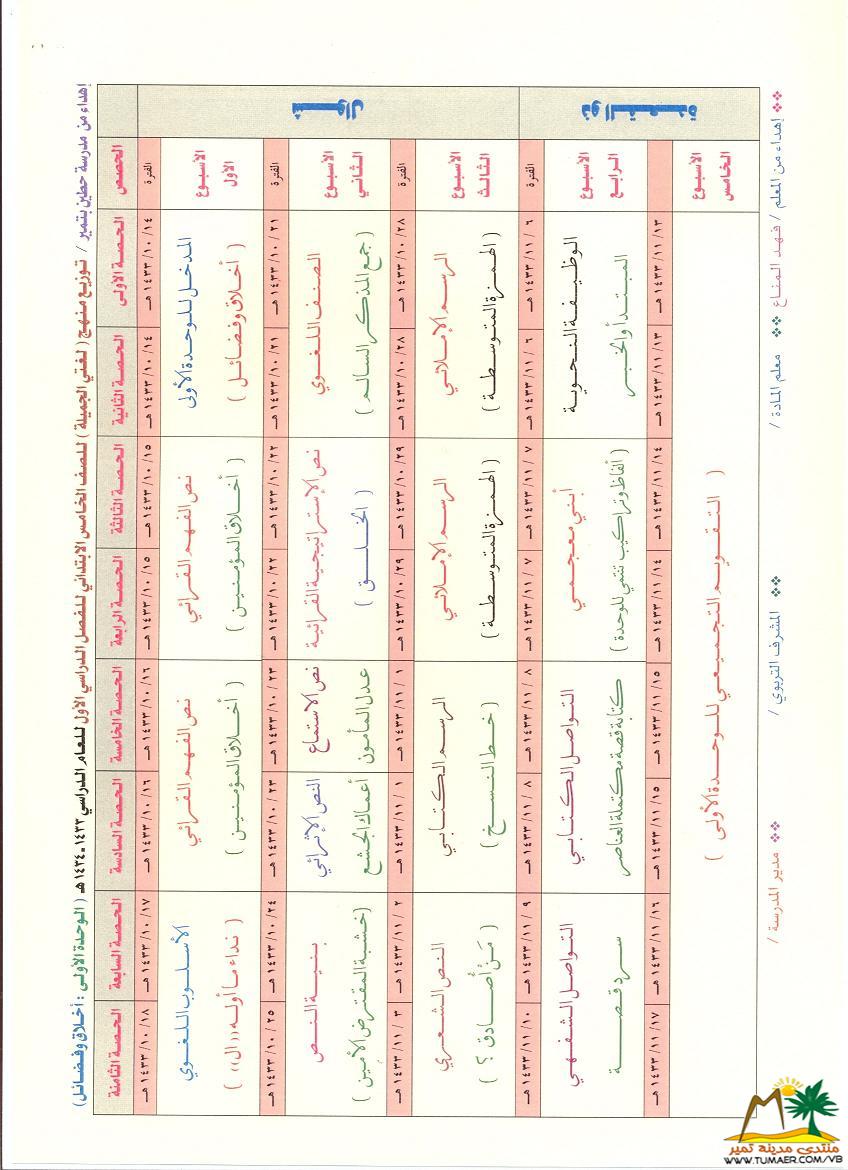 إهداء من مدرسة حطين بتمير / توزيع منهج ( لغتي الجميلة ) للصف الخامس الابتدائي للفصل الدراسي الأول للعام الدراسي ١٤٣٣-١٤٣٤ هـ ( الوحدة الأولى : أخلاق وفضائل )
الحصص
الحصة الأولى
الحصة الثانية
الحصة الثالثة
الحصة الرابعة
الحصة الخامسة
الحصة السادسة
الحصة السابعة
الحصة الثامنة
شوال
الفترة
١٤٣٣/١٠/١٤ هـ
١٤٣٣/١٠/١٤ هـ
١٤٣٣/١٠/١٥ هـ
١٤٣٣/١٠/١٥ هـ
١٤٣٣/١٠/١٦ هـ
١٤٣٣/١٠/١٦ هـ
١٤٣٣/١٠/١٧ هـ
١٤٣٣/١٠/١٨ هـ
الأسبوع
الأول
المدخل للوحدة الأولى
( أخلاق وفضائل )
نص الفهم القرائي
( أخلاق المؤمنين )
نص الفهم القرائي
( أخلاق المؤمنين )
الأسلوب اللغوي
( نداء ما أوله ((ال)) )
الفترة
١٤٣٣/١٠/٢١ هـ
١٤٣٣/١٠/٢١ هـ
١٤٣٣/١٠/٢٢ هـ
١٤٣٣/١٠/٢٢ هـ
١٤٣٣/١٠/٢٣ هـ
١٤٣٣/١٠/٢٣ هـ
١٤٣٣/١٠/٢٤ هـ
١٤٣٣/١٠/٢٥ هـ
الأسبوع
الثاني
الصنف اللغوي
( جمع المذكر السالم )
نص الإستراتيجية القرائية
( الخلق )
نص الاستماع
عدل المأمون
النص الإثرائي
أعماك الجشع
بنية النص
( خشبة المقترض الأمين )
الفترة
١٤٣٣/١٠/٢٨ هـ
١٤٣٣/١٠/٢٨ هـ
١٤٣٣/١٠/٢٩ هـ
١٤٣٣/١٠/٢٩ هـ
١٤٣٣/١١/١ هـ
١٤٣٣/١١/١ هـ
١٤٣٣/١١/٢ هـ
١٤٣٣/١١/٣ هـ
الأسبوع
الثالث
الرسم الإملائي
( الهمزة المتوسطة )
الرسم الإملائي
( الهمزة المتوسطة )
الرسم الكتابي
( خط النسخ )
النص الشعري
( مَنْ أصادق ؟ )
ذو القعدة
الفترة
١٤٣٣/١١/٦ هـ
١٤٣٣/١١/٦ هـ
١٤٣٣/١١/٧ هـ
١٤٣٣/١١/٧ هـ
١٤٣٣/١١/٨ هـ
١٤٣٣/١١/٨ هـ
١٤٣٣/١١/٩ هـ
١٤٣٣/١١/١٠ هـ
الأسبوع
الرابع
الوظيفة النحوية
المبتدأ والخبر
أبني معجمي
( ألفاظ وتراكيب تنتمي للوحدة )
التواصل الكتابي
كتابة قصة مكتملة العناصر
التواصل الشفهي
سرد قصة
١٤٣٣/١١/١٣ هـ
١٤٣٣/١١/١٣ هـ
١٤٣٣/١١/١٤ هـ
١٤٣٣/١١/١٤ هـ
١٤٣٣/١١/١٥ هـ
١٤٣٣/١١/١٥ هـ
١٤٣٣/١١/١٦ هـ
١٤٣٣/١١/١٧ هـ
الأسبوع
الخامس
( التقويم التجميعي للوحدة الأولى )
** إهداء من المعلم / فهد المناع ** معلم المادة / ** المشرف التربوي / ** مدير المدرسة /
منتدى مدينة تمير
WWW.TUMAER.COM/VB